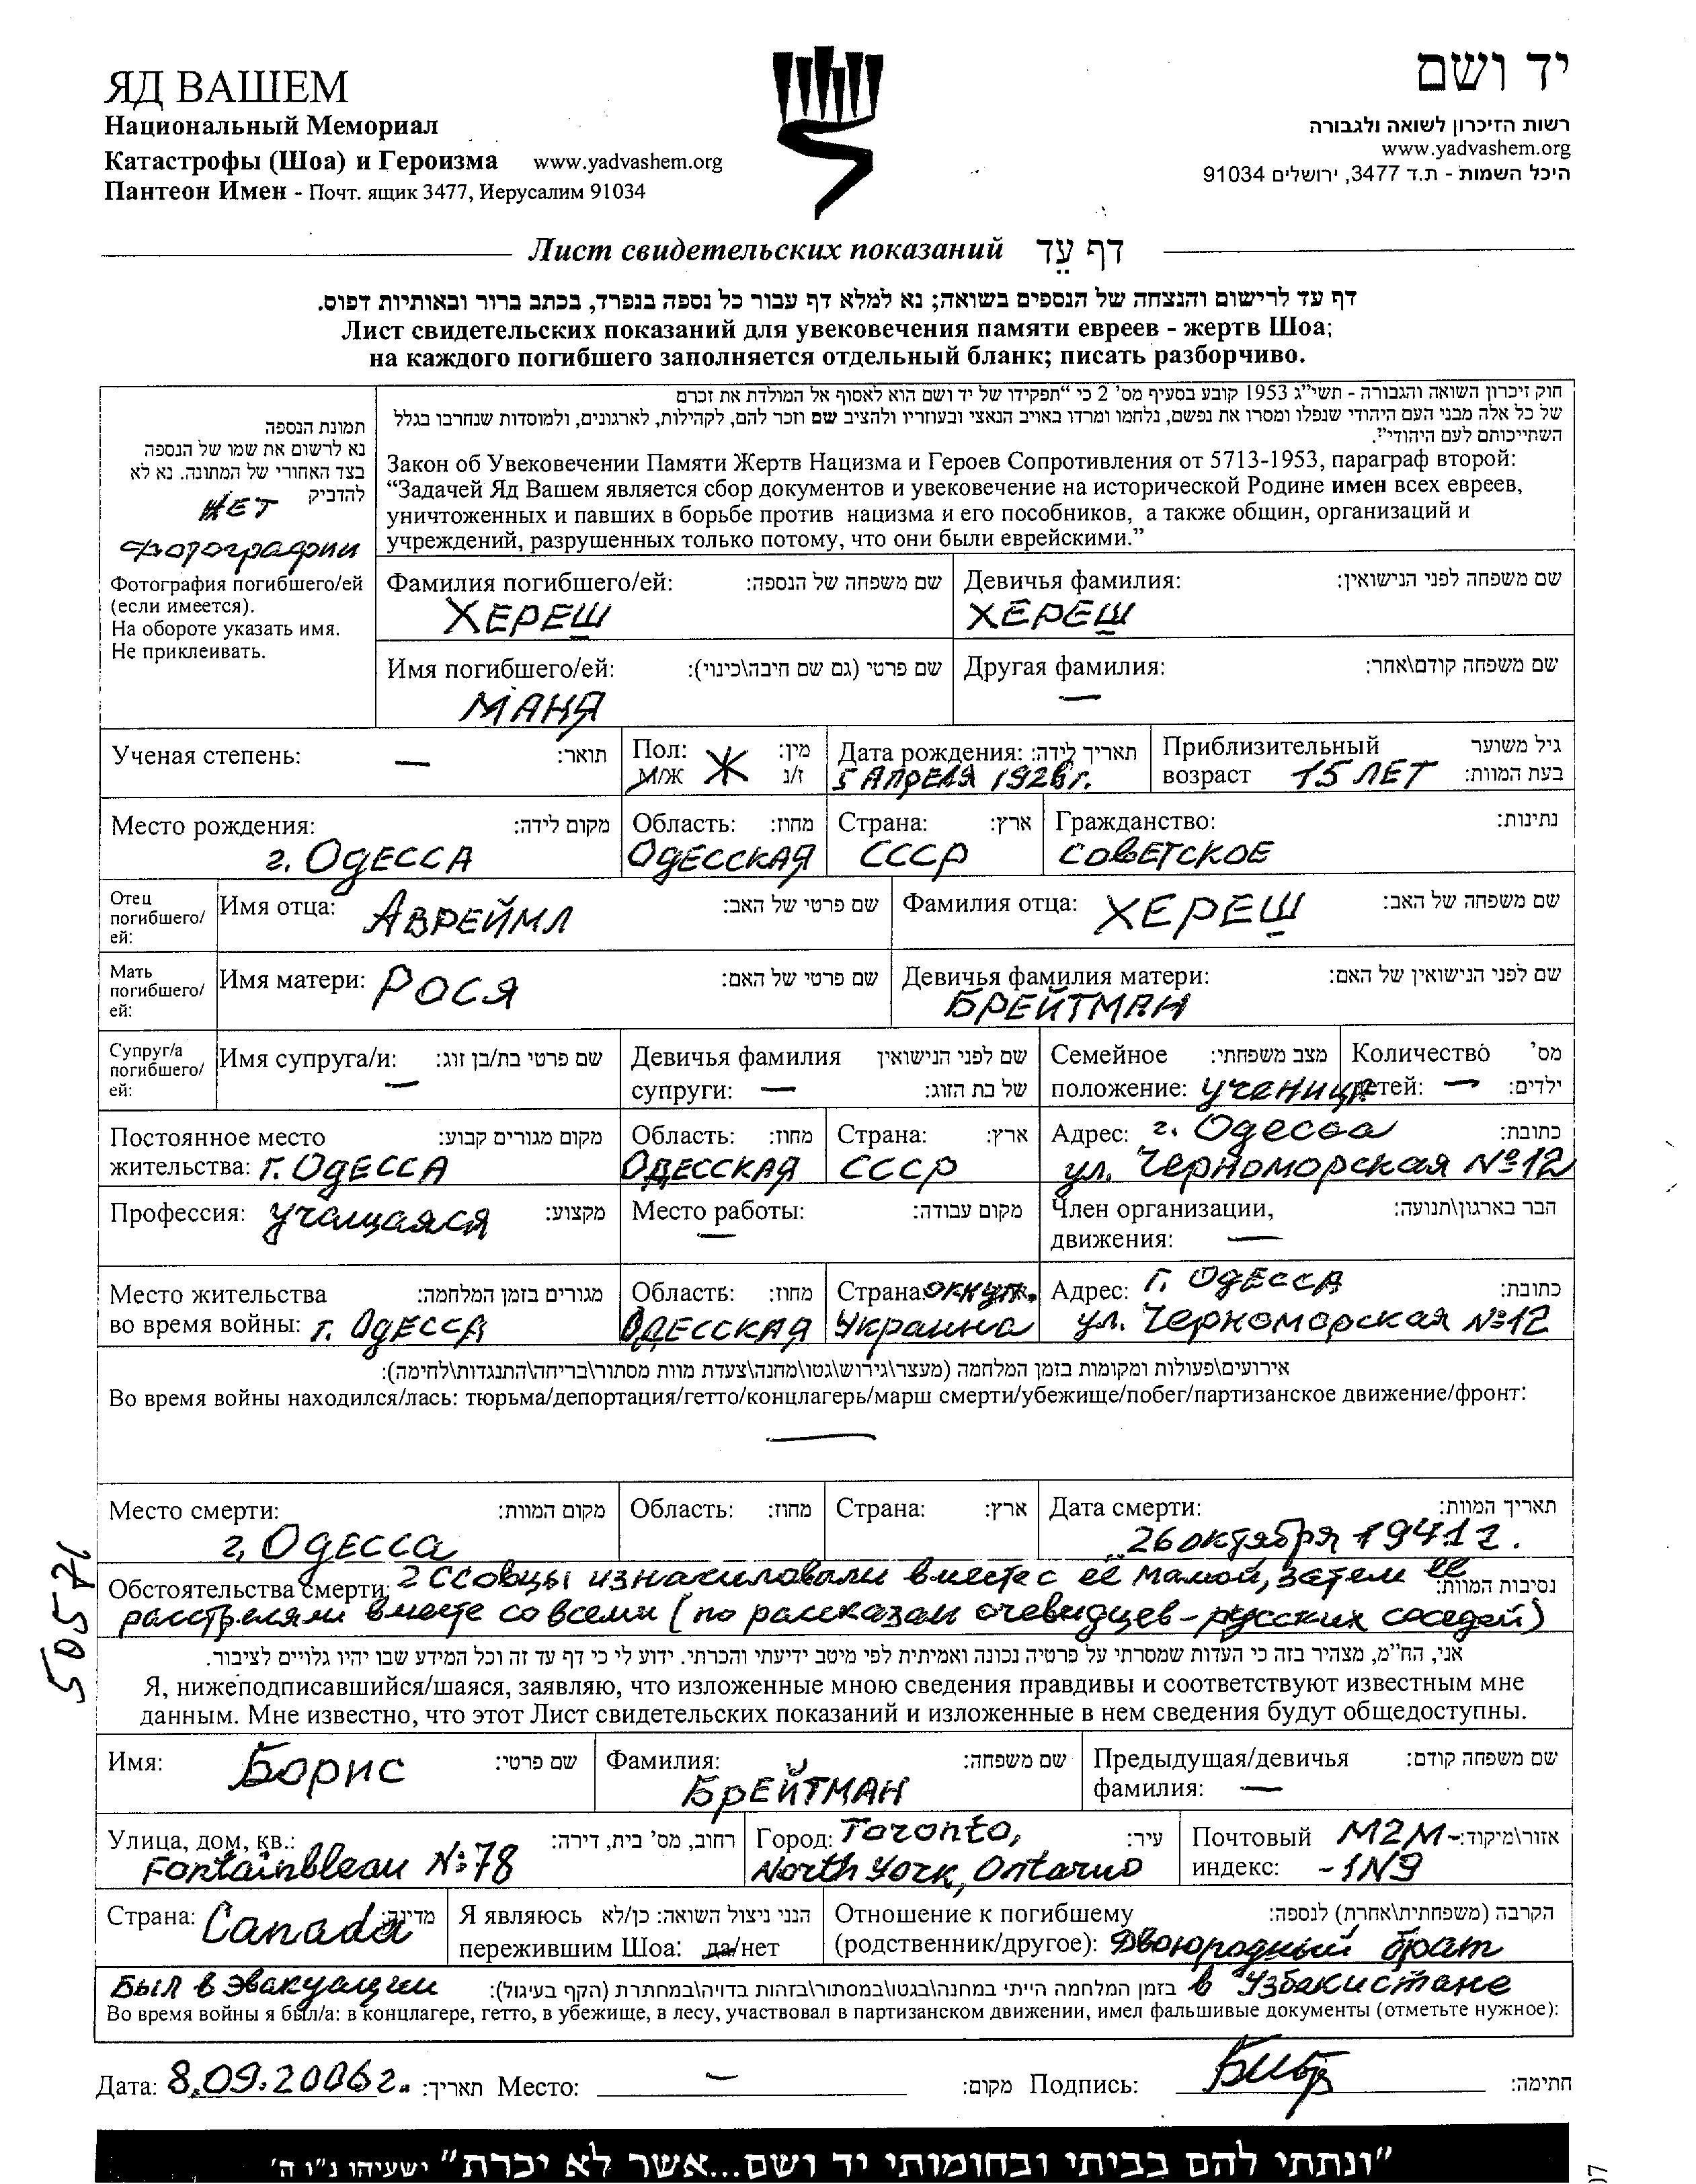 ЯД ВАШЕМ
Национальный Мемориал
Катастрофы (Шоа) и Героизма www.yadvashem.org
Пантеон Имен - Почт. ящик 3477, Иерусалим 91034
יד ושם
רשות הזיכרון לשואה ולגבורה
www.yadvashem.org
היכל השמות - ת.ד 3477, ירושלים 91034
Лист свидетельских показаний דף עֵד
דף עד לרישום והנצחה של הנספים בשואה; נא למלא דף עבור כל נספה בנפרד, בכתב ברור ובאותיות דפוס.
Лист свидетельских показаний для увековечения памяти евреев - жертв Шоа;
на каждого погибшего заполняется отдельный бланк; писать разборчиво.
תמונת הנספה
נא לרשום את שמו של הנספה
בצד האחורי של המתונה. נא לא
להדביק
НЕТ
фотографии
Фотография погибшего/ей
(если имеется).
На обороте указать имя.
Не приклеивать.
חוק זיכרון השואה והגבורה - תשי"ג 1953 קובע בסעיף מס' 2 כי "תפקידו של יד ושם הוא לאסוף אל המולדת את זכרם
של כל אלה מבני העם היהודי שנפלו ומסרו את נפשם, נלחמו ומרדו באויב הנאצי ובעוזריו ולהציב שם וזכר להם, לקהילות, לארגונים, ולמוסדות שנחרבו בגלל
השתייכותם לעם היהודי".
Закон об Увековечении Памяти Жертв Нацизма и Героев Сопротивления от 5713-1953, параграф второй:
“Задачей Яд Вашем является сбор документов и увековечение на исторической Родине имен всех евреев,
уничтоженных и павших в борьбе против нацизма и его пособников, а также общин, организаций и
учреждений, разрушенных только потому, что они были еврейскими.”
Фамилия погибшего/ей: שם משפחה של הנספה: Девичья фамилия: שם משפחה לפני הנישואין:
ХЕРЕШ ХЕРЕШ
Имя погибшего/ей: שם פרטי (גם שם חיבה\כינוי): Другая фамилия: שם משפחה קודם\אחר:
МАНЯ —
Ученая степень: — תואר: Пол: מין: Ж Дата рождения: תאריך לידה: Приблизительный גיל משוער
М/Ж ז/נ 5 АПРЕЛЯ 1926г. возраст 15 ЛЕТ בעת המוות:
Место рождения: מקום לידה: Область: מחוז: Страна: ארץ: Гражданство: נתינות:
г. ОДЕССА ОДЕССКАЯ СССР СОВЕТСКОЕ
Отец погибшего/ей: Имя отца: АВРЕЙМЛ שם פרטי של האב: Фамилия отца: ХЕРЕШ שם משפחה של האב:
Мать погибшего/ей: Имя матери: РОСЯ שם פרטי של האם: Девичья фамилия матери: שם לפני הנישואין של האם:
БРЕЙТМАН
Супруг/а погибшего/ей: Имя супруга/и: — שם פרטי בת/בן זוג: Девичья фамилия שם לפני הנישואין Семейное מצב משפחתי: Количество מס'
супруги: — של בת הזוג: положение: ученица детей: — ילדים:
Постоянное место מקום מגורים קבוע: Область: מחוז: Страна: ארץ: Адрес: г. Одесса כתובת:
жительства: Г. ОДЕССА ОДЕССКАЯ СССР ул. ЧЕРНОМОРСКАЯ №12
Профессия: учащаяся מקצוע: Место работы: מקום עבודה: Член организации, חבר בארגון\תנועה:
— движения: —
Место жительства מגורים בזמן המלחמה: Область: מחוז: Страна: оккуп. Адрес: Г. ОДЕССА כתובת:
во время войны: г. ОДЕССА ОДЕССКАЯ Украина ул. ЧЕРНОМОРСКАЯ №12
אירועים\פעולות ומקומות בזמן המלחמה (מעצר\גירוש\גטו\מחנה\צעדת מוות מסתור\בריחה\התנגדות\לחימה):
Во время войны находился/лась: тюрьма/депортация/гетто/концлагерь/марш смерти/убежище/побег/партизанское движение/фронт:
—
Место смерти: מקום המוות: Область: מחוז: Страна: ארץ: Дата смерти: תאריך המוות:
г. ОДЕССА 26 октября 1941г.
Обстоятельства смерти: 2 ССовцы изнасиловали вместе с её мамой, затем её נסיבות המוות:
расстреляли вместе со всеми (по рассказам очевидцев - русских соседей)
אני, הח"מ, מצהיר בזה כי העדות שמסרתי על פרטיה נכונה ואמיתית לפי מיטב ידיעתי והכרתי. ידוע לי כי דף עד זה וכל המידע שבו יהיו גלויים לציבור.
Я, нижеподписавшийся/шаяся, заявляю, что изложенные мною сведения правдивы и соответствуют известным мне
данным. Мне известно, что этот Лист свидетельских показаний и изложенные в нем сведения будут общедоступны.
Имя: Борис שם פרטי: Фамилия: שם משפחה: Предыдущая/девичья שם משפחה קודם:
БРЕЙТМАН фамилия: —
Улица, дом, кв.: רחוב, מס' בית, דירה: Город: Toronto, עיר: Почтовый M2M- אזור\מיקוד:
Fontainbleau №78 North York, Ontario индекс: -1N9
Страна: Canada מדינה: Я являюсь הנני ניצול השואה: כן/לא Отношение к погибшему הקרבה (משפחתית\אחרת) לנספה:
пережившим Шоа: да/нет (родственник/другое): Двоюродный брат
Был в эвакуации בזמן המלחמה הייתי במחנה\בגטו\במסתור\בזהות בדויה\במחתרת (הקף בעיגול): в Узбакистане
Во время войны я был/а: в концлагере, гетто, в убежище, в лесу, участвовал в партизанском движении, имел фальшивые документы (отметьте нужное):
Дата: 8.09.2006г. תאריך: Место: — מקום: Подпись: חתימה:
"ונתתי להם בביתי ובחומותי יד ושם...אשר לא יכרת" ישעיהו נ"ו ה'
505571
07